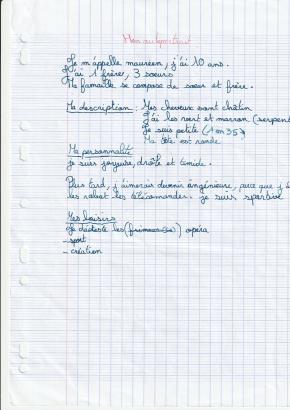 Mon autoportrait
Je m'appelle maureen, j'ai 10 ans.
J'ai 1 frère, 3 soeurs
Ma famaille se compose de soeur et frère.
Ma description : Mes cheveux sont chatin
J'ai les vert et marron (serpent
Je suis petite (1 m 35)
Ma tête est ronde
Ma personnalité
je suis joyeuse, drôle et timide.
Plus tard, j'aimerais devenir ingénieure, parce que j'
les télécomandes. je suis
Mes loisirs
Je déteste les opéra
- sport
- création